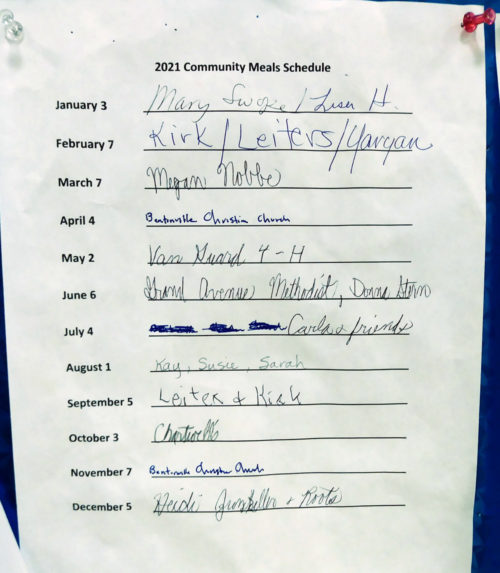 2021 Community Meals Schedule
January 3 Mary / Lisa H.
February 7 Kirk / Leiters / Yargan
March 7 Megan Nobbe
April 4 Christian Church
May 2 Van Guard 4-H
June 6 Grand Avenue Methodist, Donna Stern
July 4 Carla & friends
August 1 Kay, Susie, Sarah
September 5 Leiter & Kirk
October 3
November 7 Christian Church
December 5 Heidi + Roots